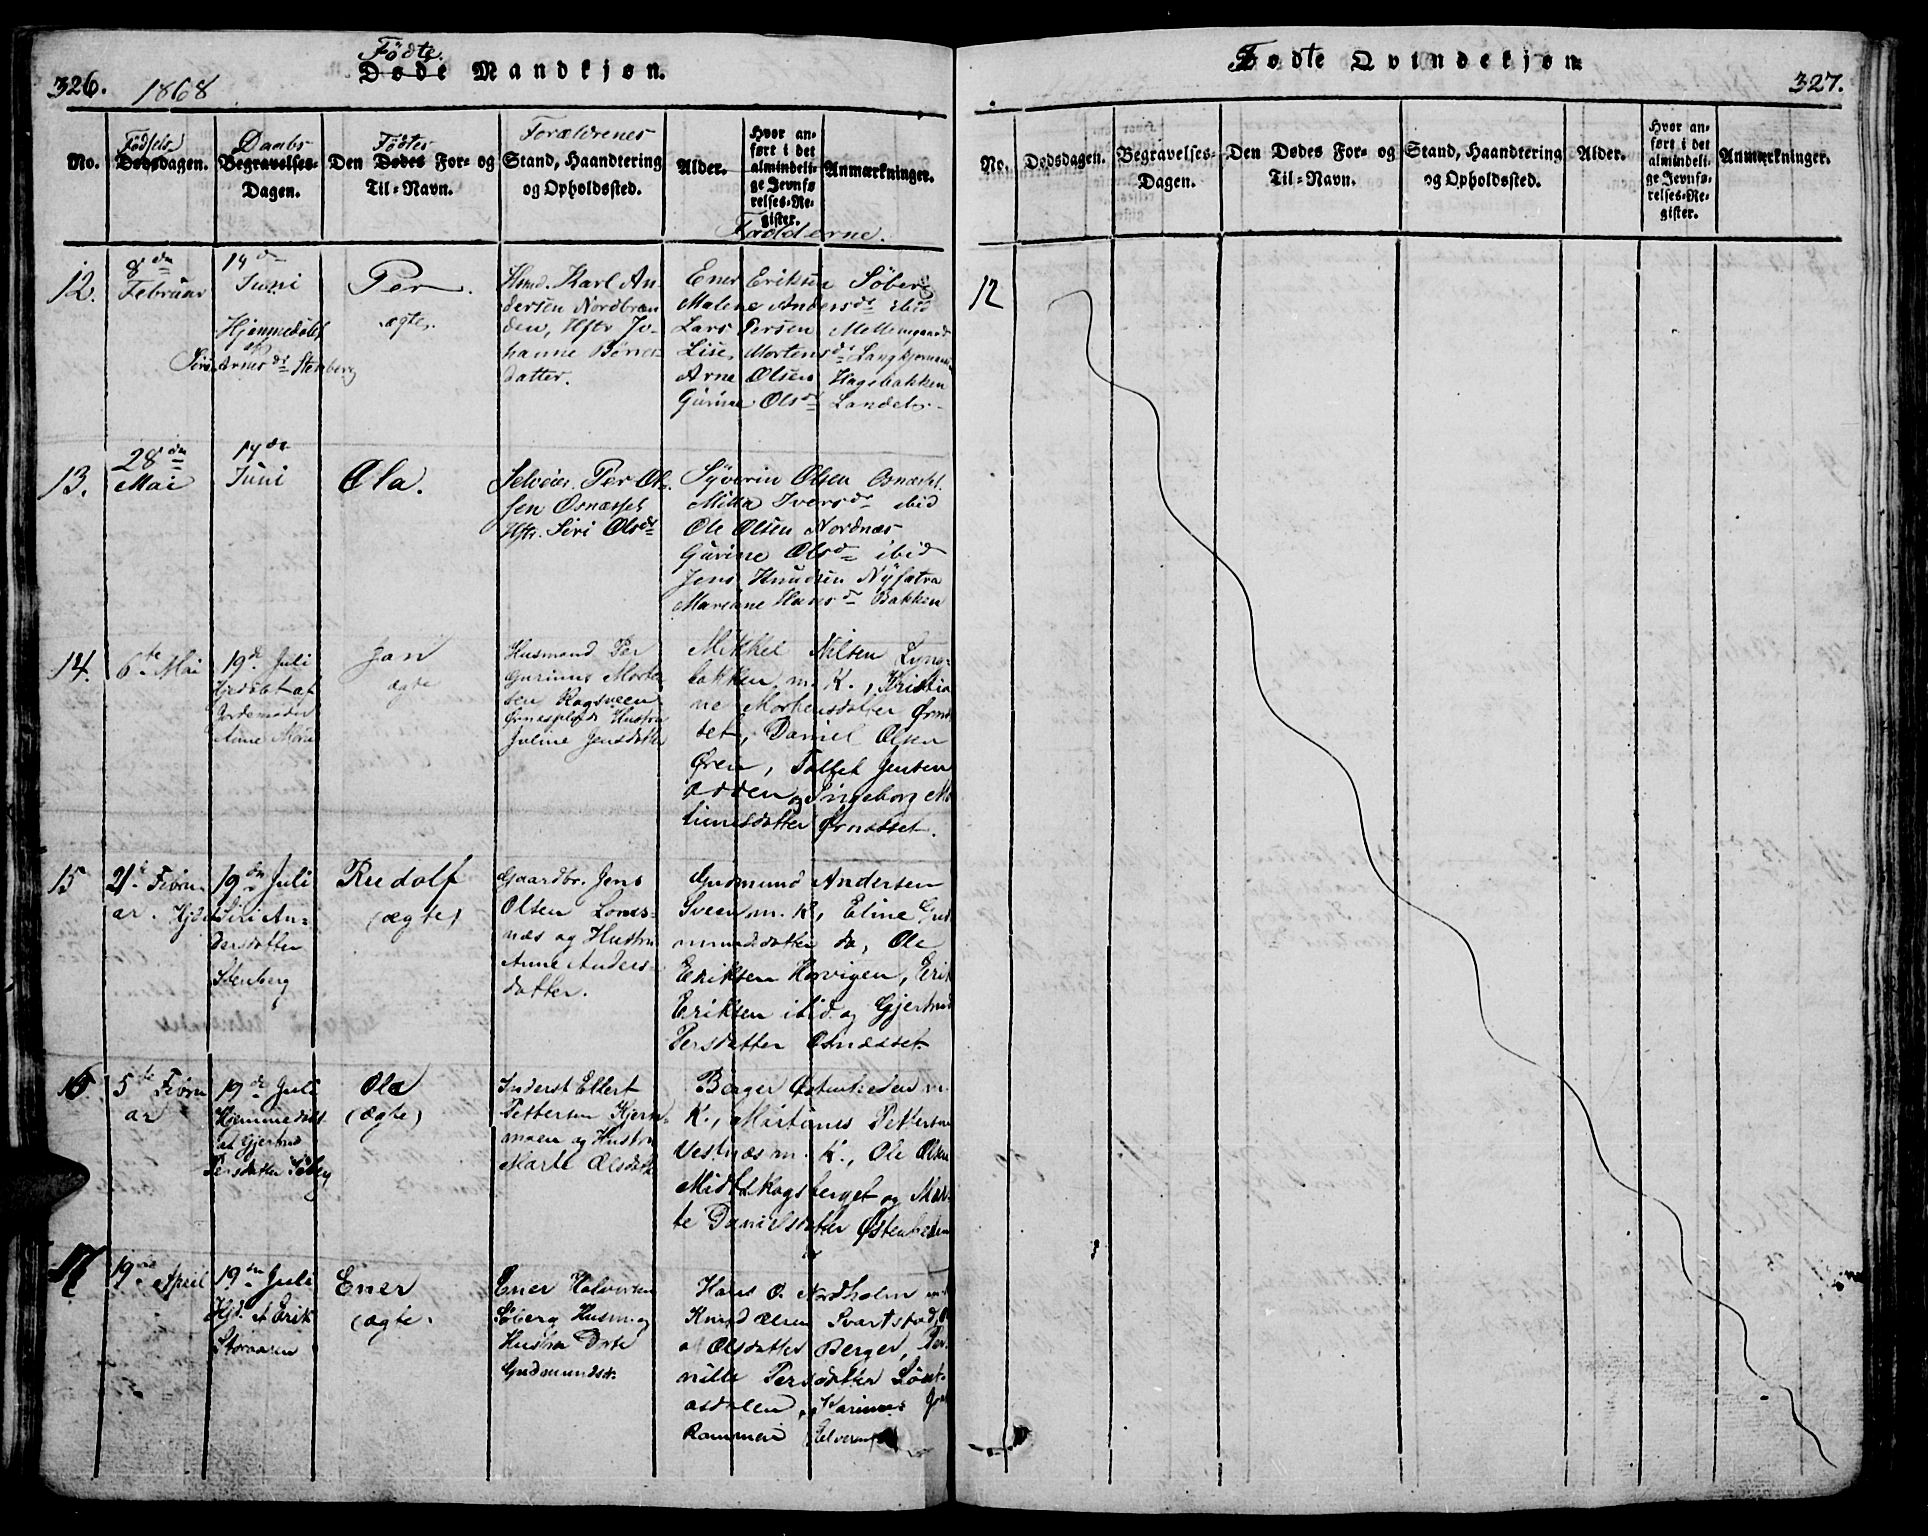 326.
1868
Fødte
Døde Mandkjøn.
No.
Fødsels
Dødsdagen.
Daabs
Begravelses-
Dagen.
Fødtes
Den Dødes For- og
Til-Navn.
Forældrenes
Stand, Haandtering
og Opholdssted.
Alder.
Hvor an-
ført i det
almindeli-
ge Jevnfø-
relses-Re-
gister.
Anmærkninger.
Fadderne.
12.
8de
Februar
14de
Juni
Hjemmedøbt
af
Arnesdr Stenberg
Per.
ægte.
Husmd. Karl An-
dersen Nordbræn
den, Hstr Jo-
hanne
datter.
Ener Eriksen Søberg
Malene Andersdr ibid
Lars Persen
Lise Mortensdr
Arne Olsen Hagebakken
Gurine Olsdr
13.
28de
Mai
14de
Juni
Ola.
Selveier. Per Ol-
sen Osnæsset
Hstr. Siri Olsdr
Syverin Olsen Osnæsset
Mitta Iversdr ibid
Ole Olsen Nordnæs
Gurine Olsdr ibid
Jens Knudsen Nysætra
Mariane Hansdr Bakken
14.
6te Mai
19de Juli
af
Jordemoder
Anne
Jan
ægte
Husmand Per
Gurinus Morten
sen
Hustru
Juline Jensdatter
Mikkel Nilsen Lyng-
bakken m. K., Kristia
ne Mortensdatter
set, Daniel Olsen
Øren, Tollef Jensen
Odden og Ingeborg
linesdatter Ørnæsset.
15
21de Febru-
ar. Hjd.
19de Juli
Siri An-
dersdatter
Stenberg
Rudolf
(ægte)
Gaardbr. Jens
Olsen Loms-
næs og Hustru
Anne Anders-
datter.
Gudmund Andersen
Sveen m. K, Eline Gud
mundsdatter do, Ole
Eriksen Horvigen, Erik
Eriksen ibid. og Gjertrud
Persdatter Osnæsset.
16.
5te Febru
ar
19de Juli
Hjemmedøbt
af Gjertrud
Persdatter Søberg
Ole
(ægte)
Inderst Ellert
Pettersen Kjern-
moen og Hustru
Marte Olsdatter
Berger Østenheden m.
K., Martines Pettersen
Vestnæs m. K., Ole Olsen
Midtskogsberget og Mar-
te Danielsdatter Østenheden
17
19de April
19de Juli
Hjd. af Erik
Ener
(ægte.
Ener Halvorsen
Søberg Husm. og
Hustru Dorte
Gudmundsdr.
Hans O. Nordholm
Knud Olsen Svartstad,
Olsdatter Berger, Per-
nille Persdatter
asdalen, Karinus
Rammen Halvorsen
Fødte Qvindekjøn
327.
No.
Dødsdagen.
Begravelses-
Dagen.
Den Dødes For- og
Til-Navn.
Stand, Haandtering
og Opholdssted.
Alder.
Hvor an-
ført i det
almindeli-
ge Jevnfø-
relses-Re-
gister.
Anmærkninger.
12